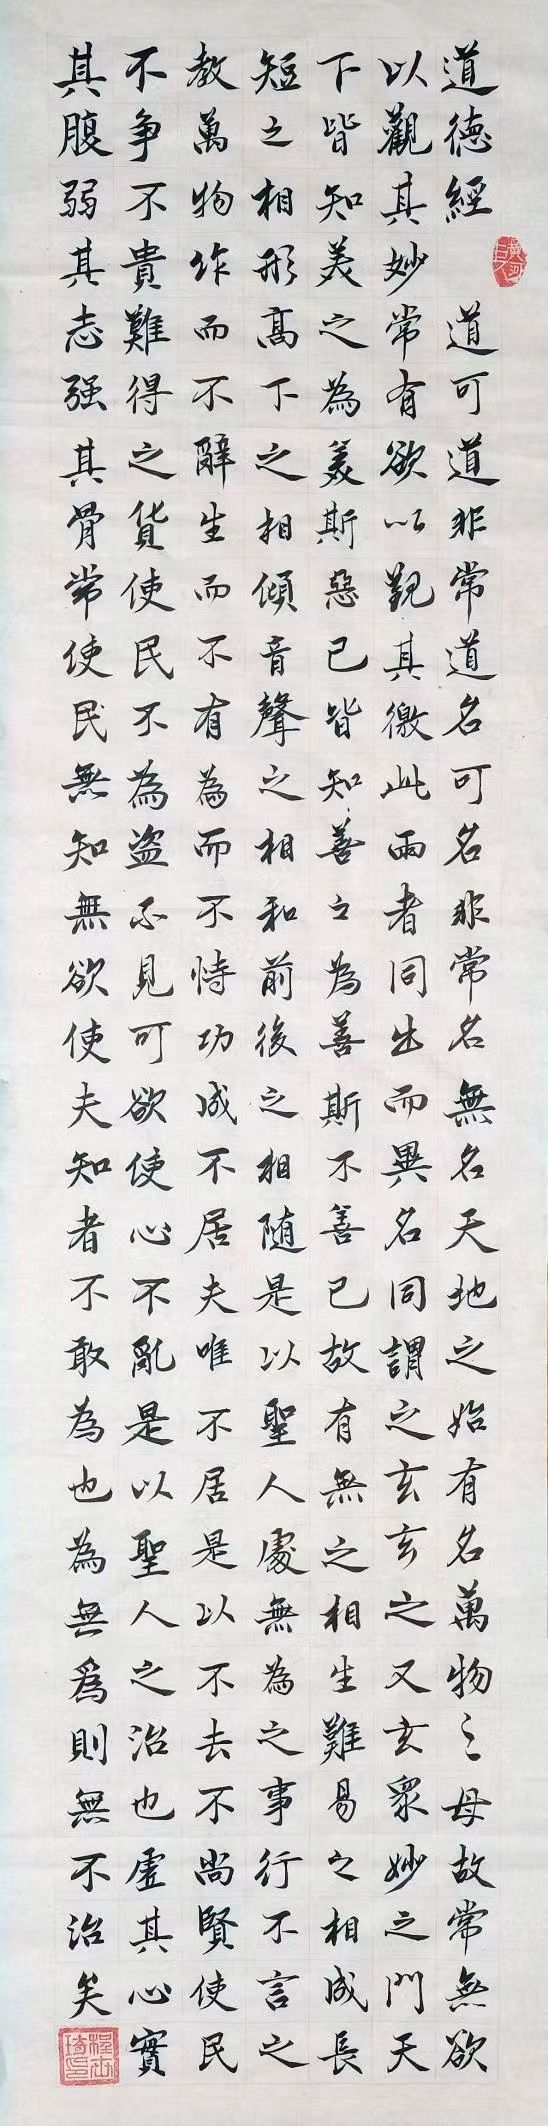 道德經 道可道非常道名可名非常名無名天地之始有名萬物之母故常無欲
以觀其妙常有欲以觀其徼此兩者同出而異名同謂之玄玄之又玄眾妙之門天
下皆知美之為美斯惡已皆知善之為善斯不善已故有無之相生難易之相成長
短之相形高下之相傾音聲之相和前後之相随是以聖人處無為之事行不言之
教萬物作而不辭生而不有為而不恃功成不居夫唯不居是以不去不尚賢使民
不争不貴難得之貨使民不為盜不見可欲使心不亂是以聖人之治也虛其心實
其腹弱其志强其骨常使民無知無欲使夫知者不敢為也為無爲則無不治矣